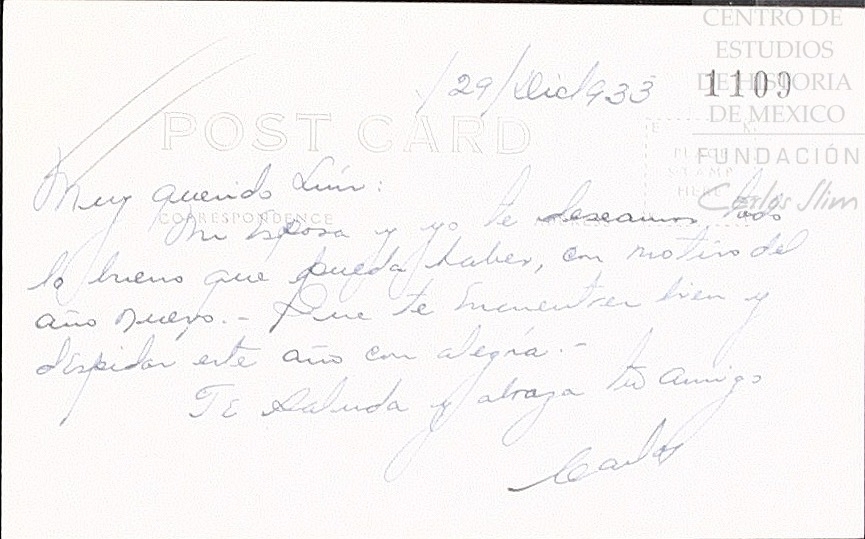 CENTRO DE
ESTUDIOS
DE HISTORIA
DE MEXICO
FUNDACIÓN
Carlos Slim
1109
29/Dic/933
POST CARD
PLACE
STAMP
HERE
CORRESPONDENCE
Muy querido Luis:
Mi esposa y yo te deseamos todo
lo bueno que pueda haber, con motivo del
año nuevo.- Que te encuentres bien y
despidas este año con alegría.-
Te saluda y abraza tu amigo
Carlos